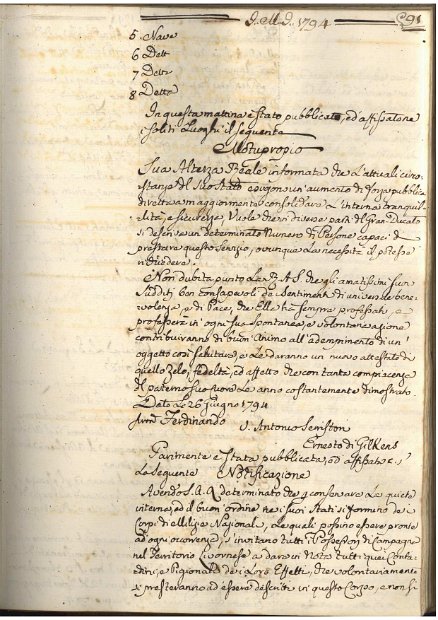 J. M. J. 1794 91
5 Nave
6 Dett
7 Dett
8 Detta
In questa mattina è stato pubblicato, ed affisso alone
i soliti Luoghi il seguente
Motuproprio
Sua Altezza Reale informata che L'attuali circo
stanze del Suo Stato esigono un'aumento di forza pubblica
diretta a maggiormente consolidare L'interna tranquil
lità, e sicurezza Vuole che in diverse parti del Gran Ducato
si descriva un determinato Numero di Persone capaci di
prestare questo servizio, ovunque La necessità il potesse
richiedere.
Non dubita punto La R. A. S. che gli amatissimi suoi
Sudditi ben consapevoli da Sentimenti di universale bene-
volenza, e di Pace, che Ella ha sempre professati, e
professerà in ogni sua spontanea, e volontaria azione
contribuiranno di buon animo all'adempimento di un'
oggetto così salutare, e Le daranno un nuovo attestato di
quello zelo, fedeltà, ed affetto che con tanta compiacenza
del paterno suo cuore Le anno costantemente dimostrato
Dato Le 26 giugno 1794
Ferdinando V. Antonio Serristori
Ernesto di Gilkens
Parimente è stata pubblicata, ed affissato c.s.
La seguente Notificazione
Avendo S. A. R. determinato che p conservare La quiete
interna, ed il buon ordine ne suoi Stati si formino de
Corpi di Milizie Nazionali, Le quali possino essere pronte
ad ogni occorrenza, s'invitano tutti i Possessori di Campagna
nel Territorio Livornese a dare in Nota tutti quei Conta
dini, e Pigionali de i Loro Effetti, che volontariamente
si presteranno ad essere descritti in questo Corpo, e non si